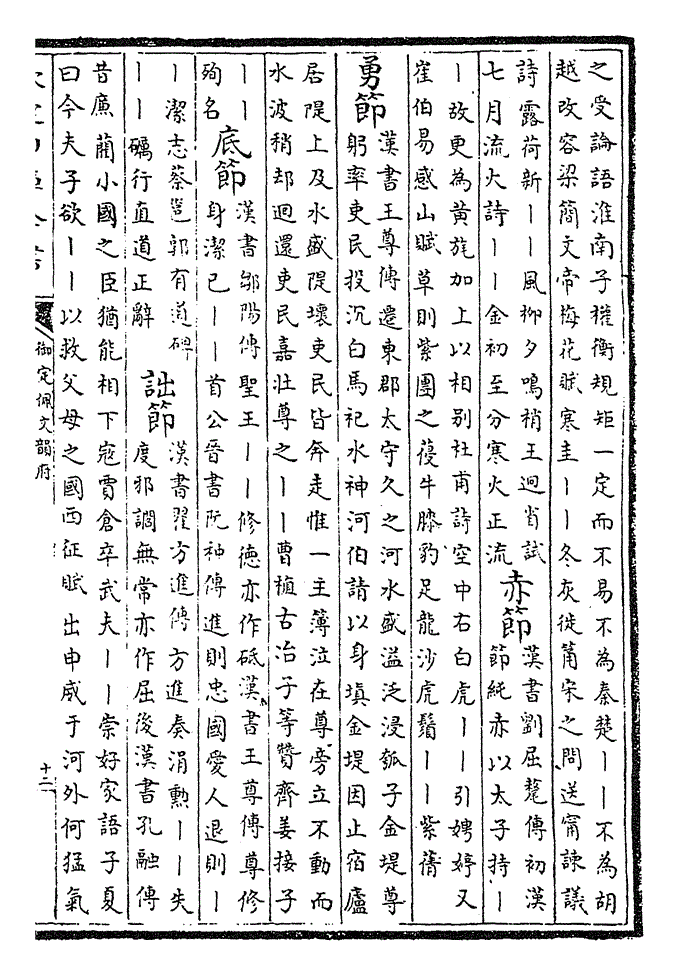 之受論語淮南子權衡規矩一定而不易不為秦楚丨丨不為胡
越改容梁簡文帝梅花賦寒圭丨丨冬灰徙筩宋之問送甯諫議
詩露荷新丨丨風柳夕鳴梢王迥省試
七月流火詩丨丨金初至分寒火正流
赤節
漢書劉屈氂傳初漢
節純赤以太子持丨
丨故更為黃旄加上以相别杜甫詩空中右白虎丨丨引娉婷又
崔伯易感山賦草則紫團之葠牛膝豹足龍沙虎鬚丨丨紫蓿
勇節
漢書王尊傳遷東郡太守久之河水盛溢泛浸瓠子金堤尊
躬率吏民投沉白馬祀水神河伯請以身填金堤因止宿廬
居隄上及水盛隄壞吏民皆奔走惟一主簿泣在尊旁立不動而
水波稍却迴還吏民嘉壯尊之丨丨曹植古冶子等贊齊姜接子
丨丨
殉名
底節
漢書鄒陽傳聖王丨丨修德亦作砥漢書王尊傳尊修
身潔己丨丨首公晉書阮神傳進則忠國愛人退則丨
丨潔志蔡邕郭有道碑
丨丨礪行直道正辭
詘節
漢書翟方進傳方進奏涓勲丨丨失
度邪讇無常亦作屈後漢書孔融傳
昔廉藺小國之臣猶能相下寇賈倉卒武夫丨丨崇好家語子夏
曰今夫子欲丨丨以救父母之國西征賦出申威于河外何猛氣
御定佩文韻府
十二